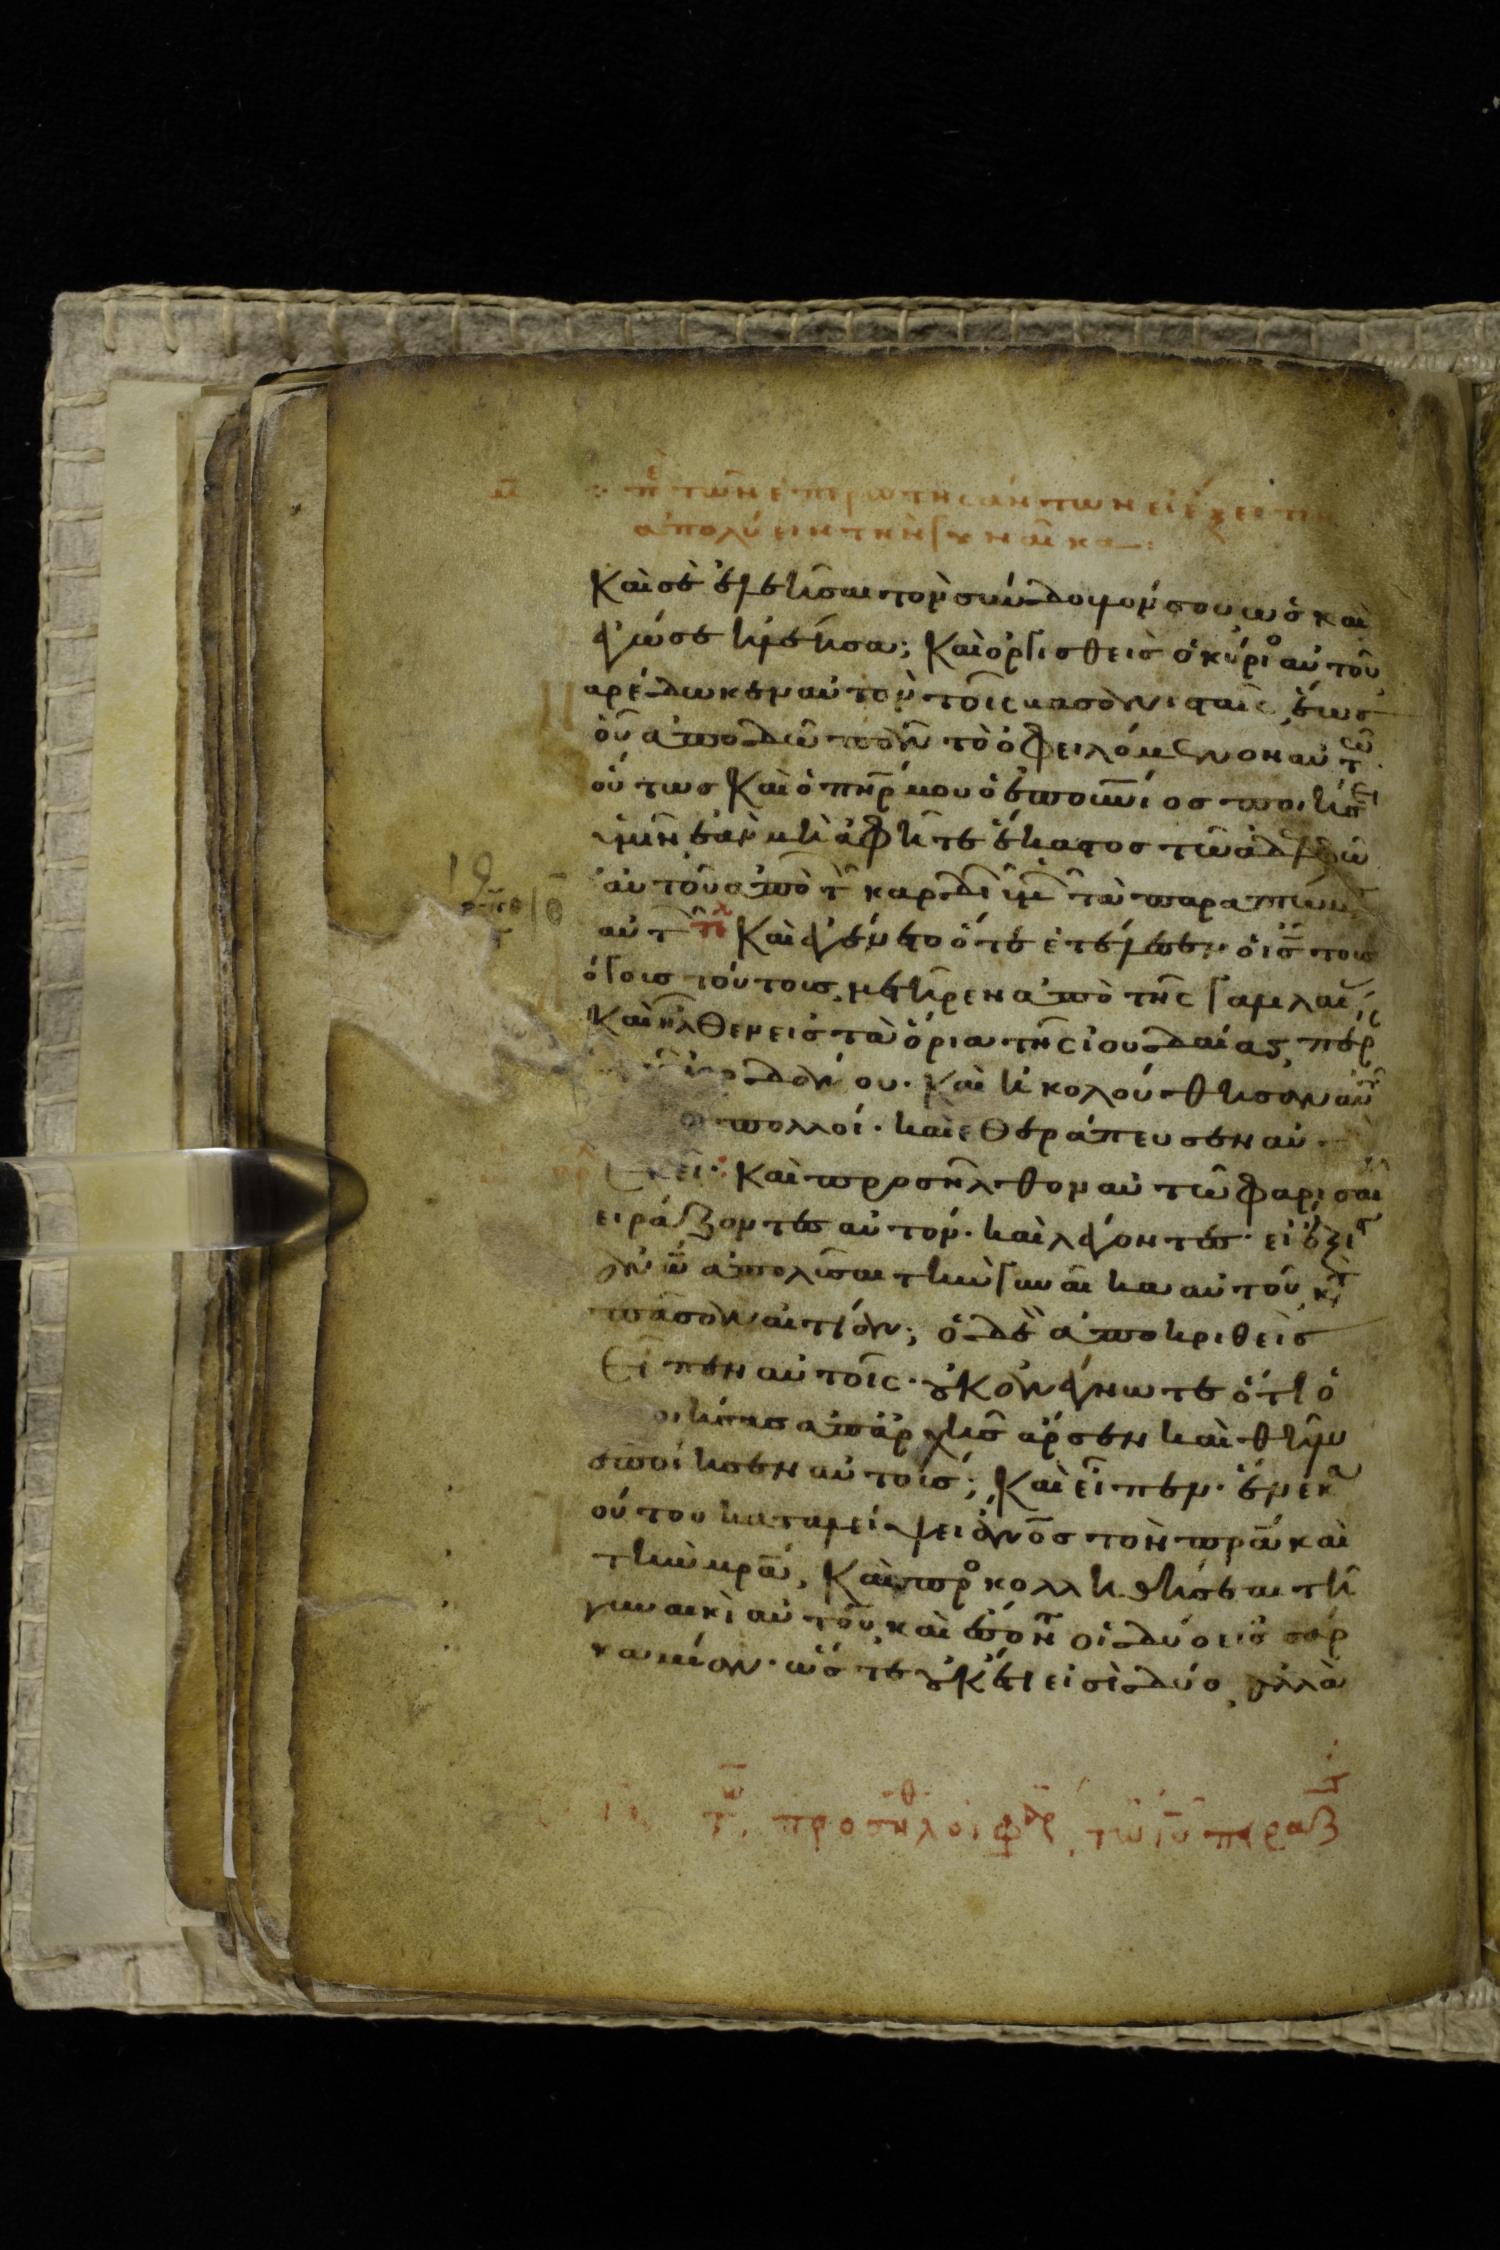 μ πε τῶν ἐπερωτησάντων εἰ ἔξεστιν
ἀπολύειν τὴν γυναῖκα:
Καὶ σὲ ἐλεῆσαι τὸν σύνδουλόν σου ὡς καὶ
ἐγώ σε ἠλέησα; Καὶ ὀργισθεὶς ὁ κύριο αὐτοῦ
αρέδωκεν αὐτὸν τοῖς βασανισταῖς, ἕως
οὗ ἀποδῶ πᾶν τὸ ὀφειλόμενον αὐτῶ.
οὕτως Καὶ ὁ πηρ μου ὁ ἐπουνιος ποιήσει
ὑμῖν ἐὰν μὴ ἀφῆτε ἕκαστος τῶ ἀδελφῶ
αὐτοῦ ἀπὸ τ καρδι ὑμ τὰ παραπτώμ
αὐτ Καὶ ἐγένετο ὅτε ἐτέλεσεν ὁ ις τοὺς
λόγοις τούτοις, μετῆρεν ἀπὸ τῆς γαλιλαί,
Καὶ ἦλθεν εἰς τὰ ὅρια τῆς ἰουδαίας, πέρ
ἰορδάνου. Καὶ ἠκολούθησαν αὐτ
οι πολλοί. καὶ ἐθεράπευσεν αὐ
ἐκεῖ: Καὶ προσῆλθον αὐτῶ φαρισαῖ
ειράζοντες αὐτόν. καὶ λέγοντες. εἰ ἔξεστ
ἀνω ἀπολῦσαι τὴν γυναῖκα αὐτοῦ κατ
πᾶσαν αἰτίαν; ὁ δὲ ἀποκριθεὶς
Εἶπεν αὐτοῖς. οὐκ ἀνέγνωτε ὅτι ὁ
οιήσας ἀπάρχῆς ἄρσεν καὶ θῆλυ
ἐποίησεν αὐτούς; Καὶ εἶπεν. ἕνεκα
τούτου καταλείψει ἀνος τὸν πρα καὶ
τὴν μρα, Καὶ προκολληθήσεται τῆ
γυναικὶ αὐτοῦ, καὶ ἔσονται οἱ δύο εἰς σάρ
κα μίαν. ὥστε οὐκέτι εἰσὶ δύο, ἀλλὰ
προσηλθ οι φαρ τῶ ιυ πειραζ